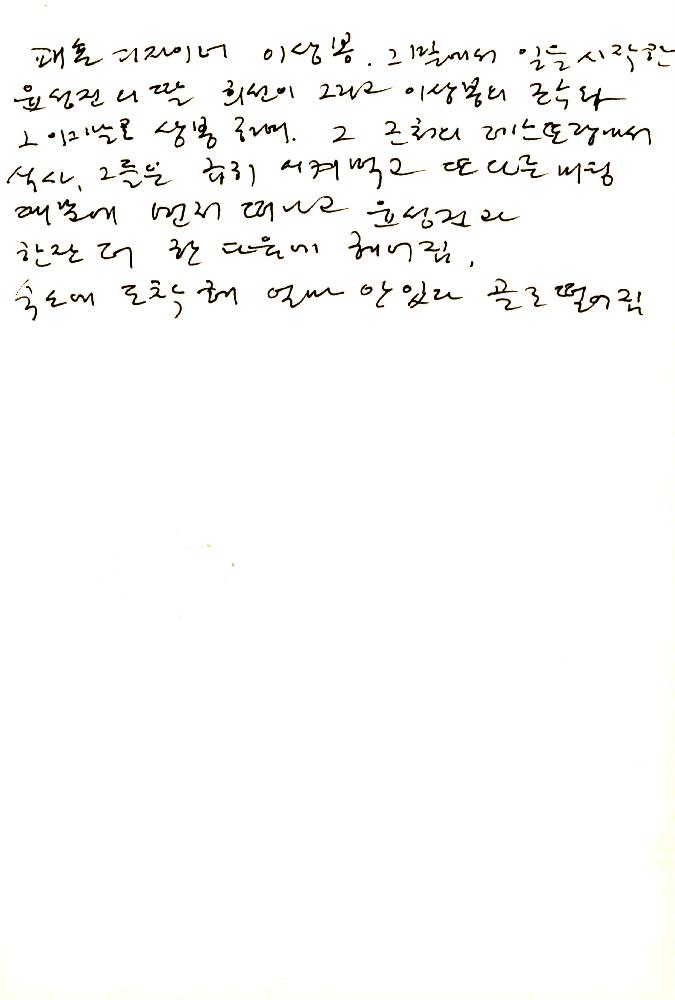 패션 디자이너 이상봉. 그 밑에서 일을 시작한
윤성진의 딸 희선이 그리고 이상봉의 조수와
상봉 하며. 그 근처의 레스토랑에서
식사. 그들은 급히 시켜먹고 또 다른 미팅
때문에 먼저 떠나고 윤성진과
한잔 더 한 다음에 헤어짐.
숙소에 도착해 얼마 안있다 골로 떨어짐